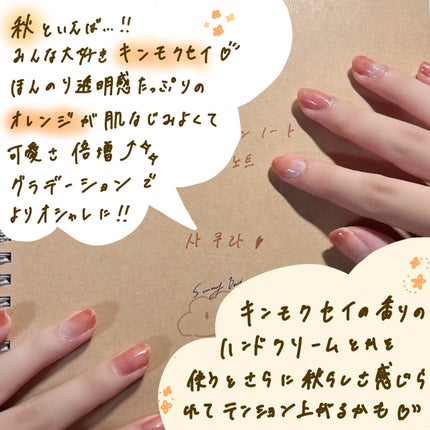 秋といえば…!!
みんな大好きキンモクセイ♡
ほんのり透明感たっぷりの
オレンジが肌なじみよくて
可愛さ倍増↑
グラデーションで
よりオシャレに!!
ンノート
노트
사쿠라♥
キンモクセイの香りの
ハンドクリームとかを
使うとさらに秋らしさ感じら
れてテンション上がるかも♡